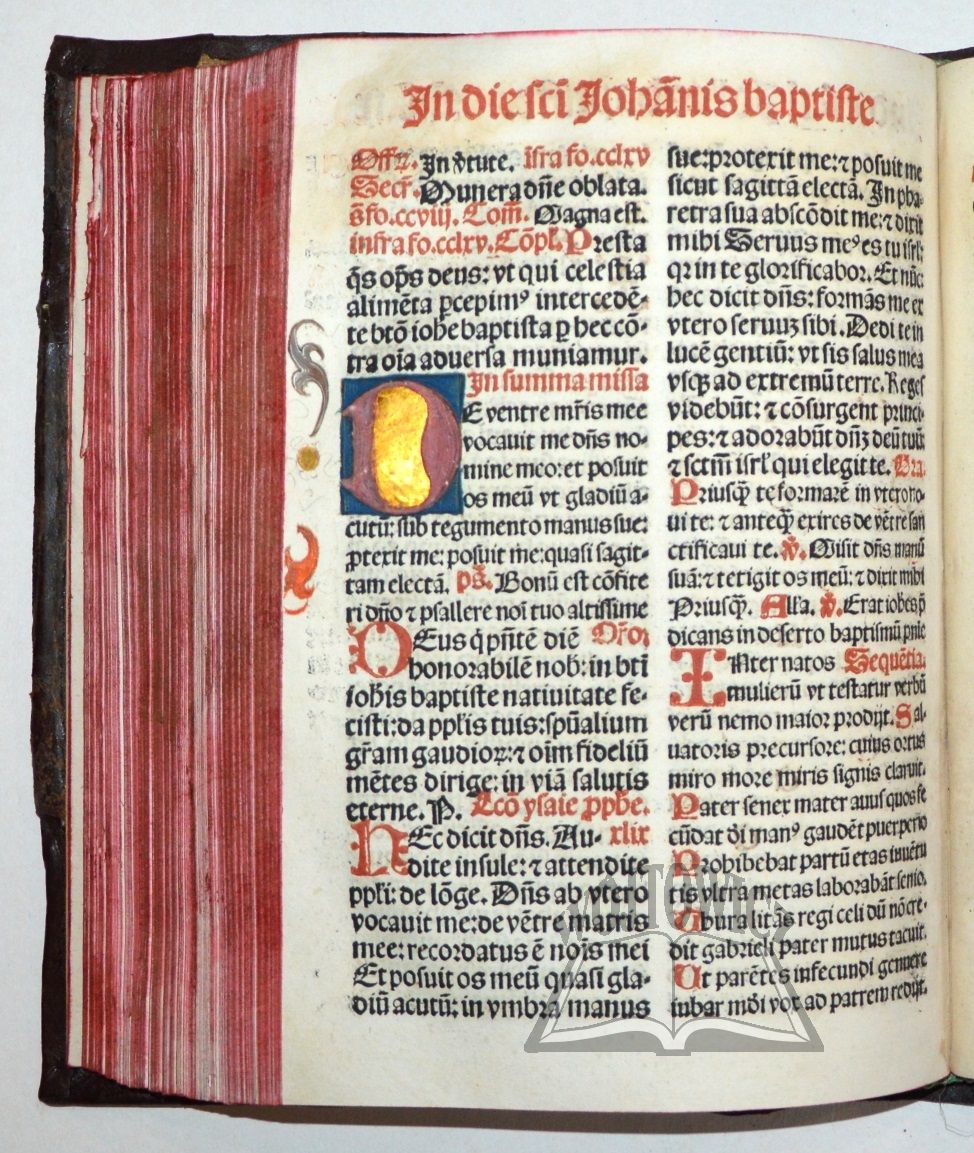 In die scī Johānis baptiste
Offꝝ. In v̄tute. īfra fo. cclxv
Secr̄. Munera dn̄e oblata.
s̄ fo. ccviij. Com̄. Magna est.
infra fo. cclxv. Cōpl̄. Presta
q̄s op̄s deus: vt qui celestia
alimēta ꝑcepimꝰ intercedē-
te btō iohe baptista ꝑ hec cō-
tra oīa adversa muniamur.
In summa missa
DE ventre mr̄is mee
vocauit me dn̄s no-
mine meo: et posuit
os meū vt gladiū a-
cutū: sub tegumento manus sue:
ꝓtexit me: posuit me: quasi sagit-
tam electā. ps̄. Bonū est cōfite
ri dn̄o ⁊ psallere noī tuo altissime
DEus q̇ pn̄tē diē Or̄o
honorabilē nob: in btī
ioh̄is baptiste natiuitate fe-
cisti: da ppl̄is tuis: spūalium
gr̄am gaudioꝝ: ⁊ oīm fideliū
mētes dirige: in viā salutis
eterne. P. Lcō ysaie ꝓph̄e.
HEc dicit dn̄s. Au- xlix
dite insule: ⁊ attendite
ppl̄i: de lōge. Dn̄s ab vtero
vocauit me: de vētre matris
mee: recordatus ē nois̄ mei
Et posuit os meū quasi gla-
diū acutū: in vmbra manus
sue: protexit me: ⁊ posuit me
sicut sagittā electā. In pha-
retra sua abscōdit me: ⁊ dixit
mihi Seruus meꝰ es tu isrl̄:
qꝛ in te glorificabor. Et nūc
hec dicit dn̄s: formās me ex
vtero seruuꝫ sibi. Dedi te in
lucē gentiū: vt sis salus mea
vsqꝫ ad extremū terre. Reges
videbūt: ⁊ cōsurgent princi-
pes: ⁊ adorabūt dn̄ꝫ deū tuū
⁊ sctm̄ isrl̄ qui elegit te. Gra.
Priusqꝫ te formarē in vtero no-
ui te: ⁊ anteqꝫ exires de vētre san
ctificaui te. v̄. Misit dn̄s manū
suā: ⁊ tetigit os meū: ⁊ dixit mihi
Priusqꝫ. All̄a. v̄. Erat iohes p̄
dicans in deserto baptismū pn̄ie
INter natos Sequētia.
mulierū vt testatur verbū
verū nemo maior prodijt. Sal-
uatoris precursore: cuius ortus
miro more miris signis claruit.
Pater senex mater auus quos fe
cūdat di manꝰ gaudēt puerperio
Prohibebat partū etas iuuētu
tis vltra metas laborabāt senio.
Abura litās regi celi dū nō cre-
dit gabrieli pater mutus tacuit.
Ut parētes infecundi genuere
iubar mōi vox ad patrem redijt.